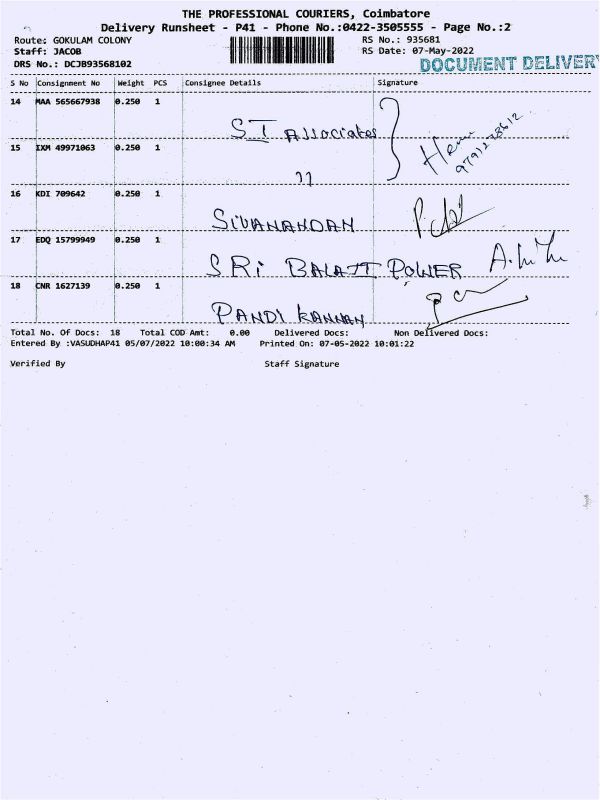 THE PROFESSIONAL COURIERS, Coimbatore
Delivery Runsheet - P41 - Phone No.:0422-3505555 - Page No.:2
Route: GOKULAM COLONY RS No.: 935681
Staff: JACOB RS Date: 07-May-2022
DRS No.: DCJB93568102 DOCUMENT DELIVERY
S No Consignment No Weight PCS Consignee Details Signature
14 MAA 565667938 0.250 1
S I Associates
15 IXM 49971063 0.250 1
9791278612
"
16 KDI 709642 0.250 1
SIVANANDAN
17 EDQ 15799949 0.250 1
SRI BALAJI POWER
18 CNR 1627139 0.250 1
PANDI KANNAN
Total No. Of Docs: 18 Total COD Amt: 0.00 Delivered Docs: Non Delivered Docs:
Entered By :VASUDHAP41 05/07/2022 10:00:34 AM Printed On: 07-05-2022 10:01:22
Verified By Staff Signature